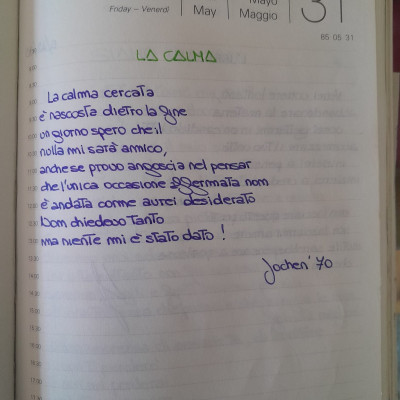 Friday – Venerdì
May
Mayo
Maggio
31
85 05 31
LA CALMA
La calma cercata
è nascosta dietro la fine
un giorno spero che il
nulla mi sarà amico,
anche se provo angoscia nel pensar
che l'unica occasione afferrata non
è andata come avrei desiderato
Non chiedevo tanto
ma niente mi è stato dato !
Jochen '70